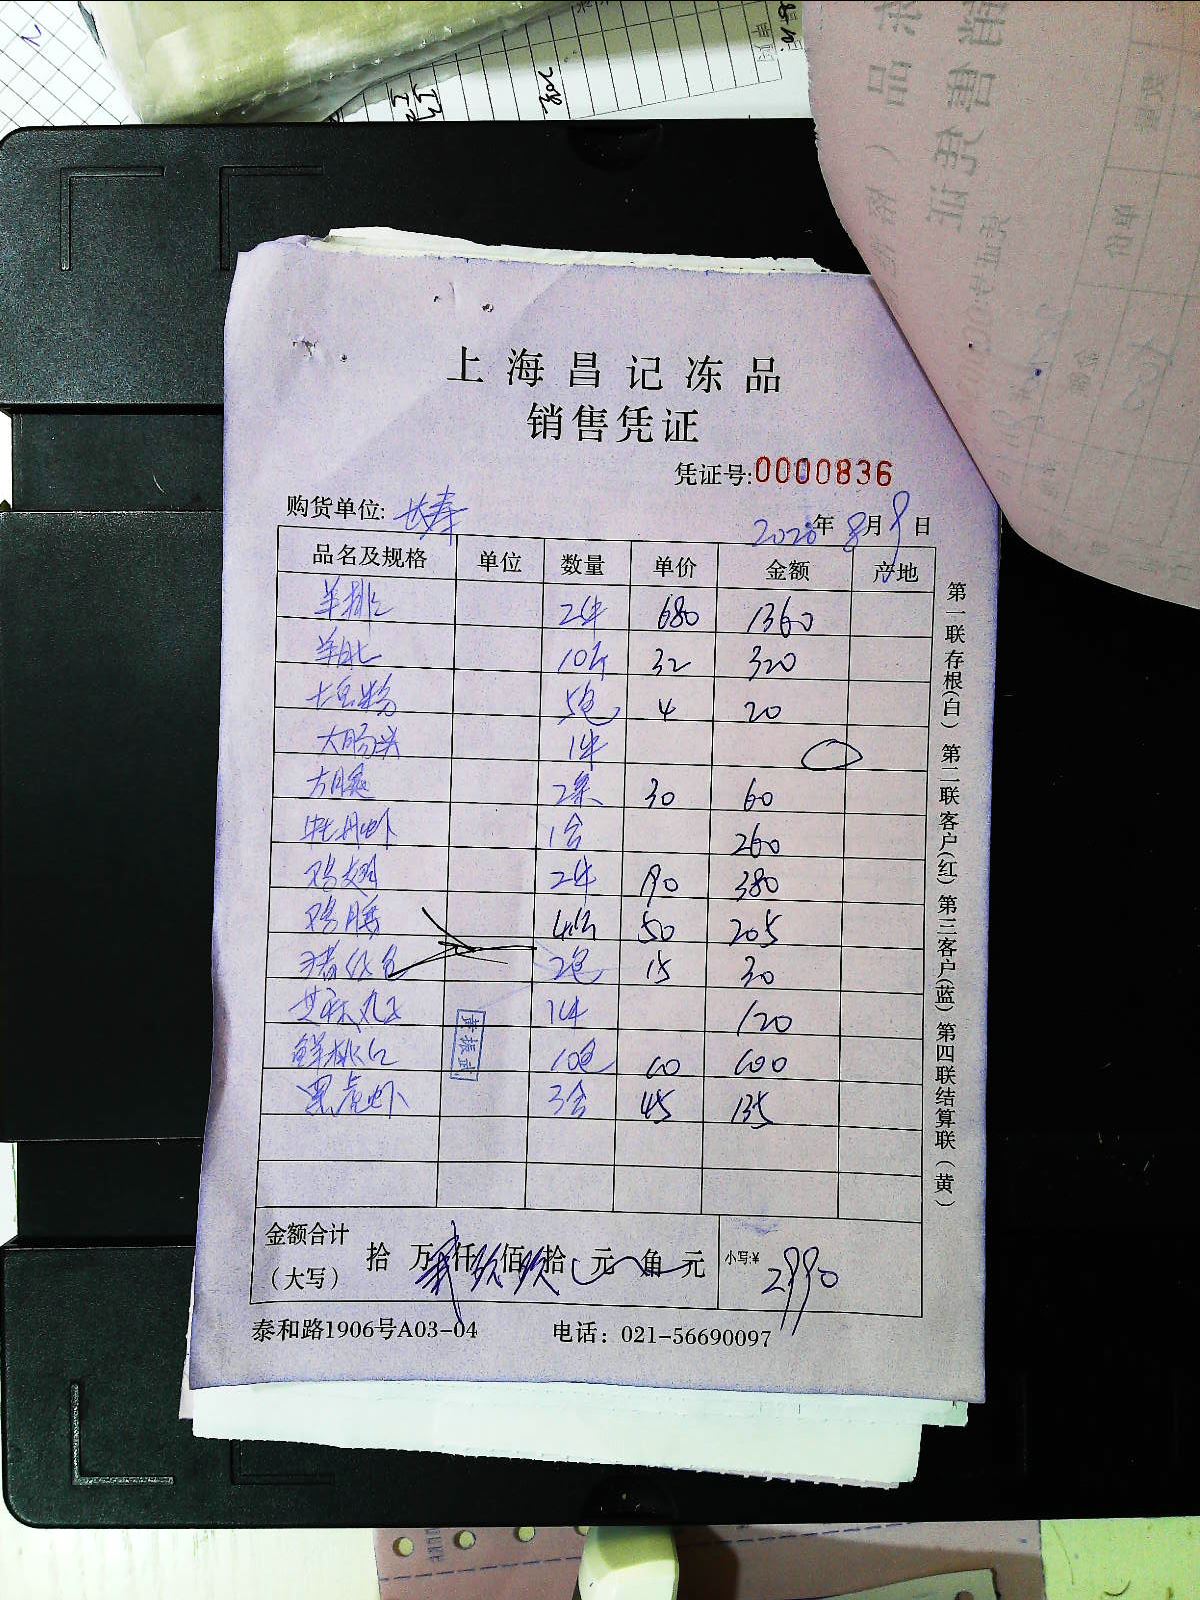 上海昌记冻品
销售凭证
凭证号:0000836
购货单位: 长寿 2020年8月9日
品名及规格 单位 数量 单价 金额 产地
羊排 2件 680 1360
10斤 32 320
土豆粉 5包 4 20
大肠头 1件
2条 30 60
牡丹虾 1合 260
鸡翅 2件 190 380
鸡腰 50 205
2包 15 30
芝麻丸子 1件 120
鲜桃仁 10包
黑虎虾 3合 45 135
金额合计
(大写) 拾 万 贰 仟 玖 佰 玖 拾 元 角 元 小写:¥ 2990
泰和路1906号A03-04 电话：021-56690097
第一联存根(白) 第二联客户(红) 第三客户(蓝) 第四联结算联(黄)
黄振武